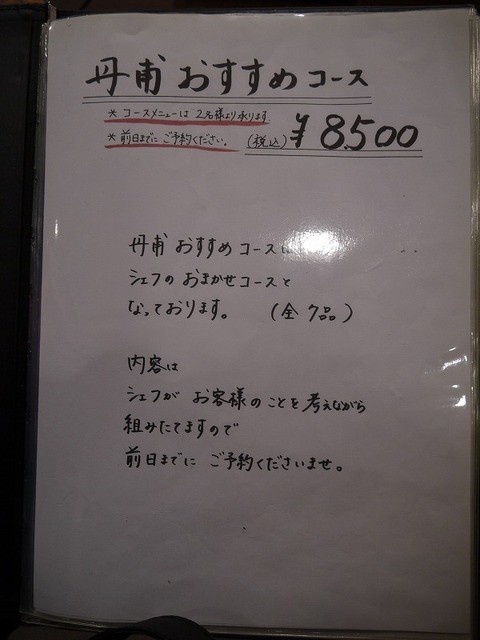 丹甫 おすすめコース
* コースメニューは 2名様より承ります
* 前日までに ご予約ください。 (税込) ¥8,500
丹甫 おすすめコースは
シェフの おまかせコースと
なっております。 (全 7品)
内容は
シェフが お客様のことを考えながら
組みたてますので
前日までに ご予約くださいませ。